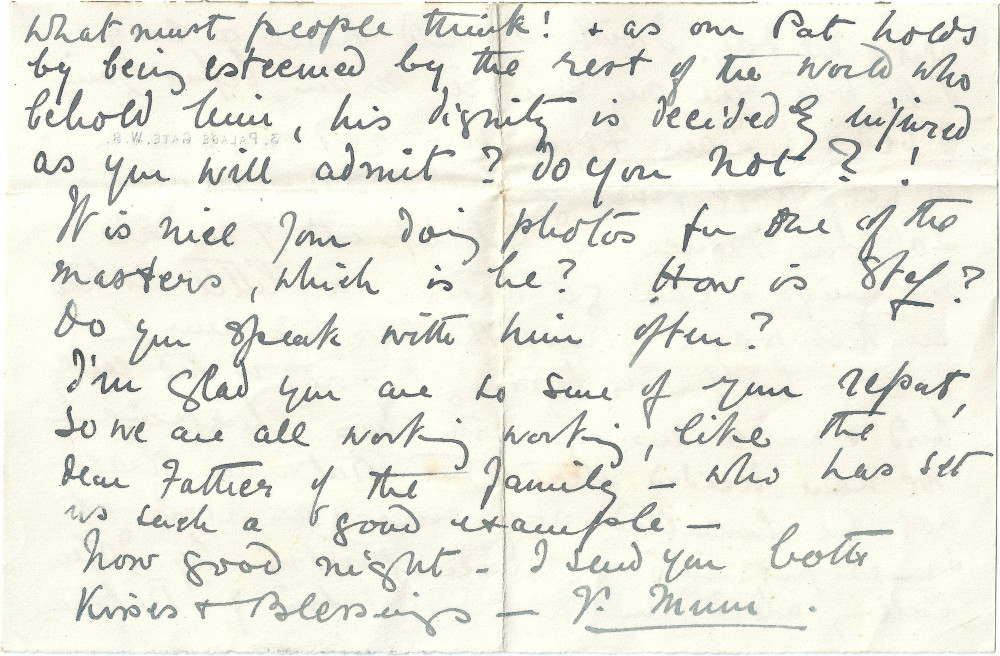 What must people think! + as our Pat holds
by being esteemed by the rest of the world who
behold him, his dignity is decidedly injured
as you will admit? do you not?!
It is nice your doing photos for one of the
masters, which is he? How is Stef?
Do you speak with him often?
I'm glad you are so sure of your report,
so we are all working, working, like the
dear Father of the Family – who has set
us such a good example –
Now good night – I send you both
Kisses + Blessings – Y. Mum.
3. PALACE GATE. W.8.